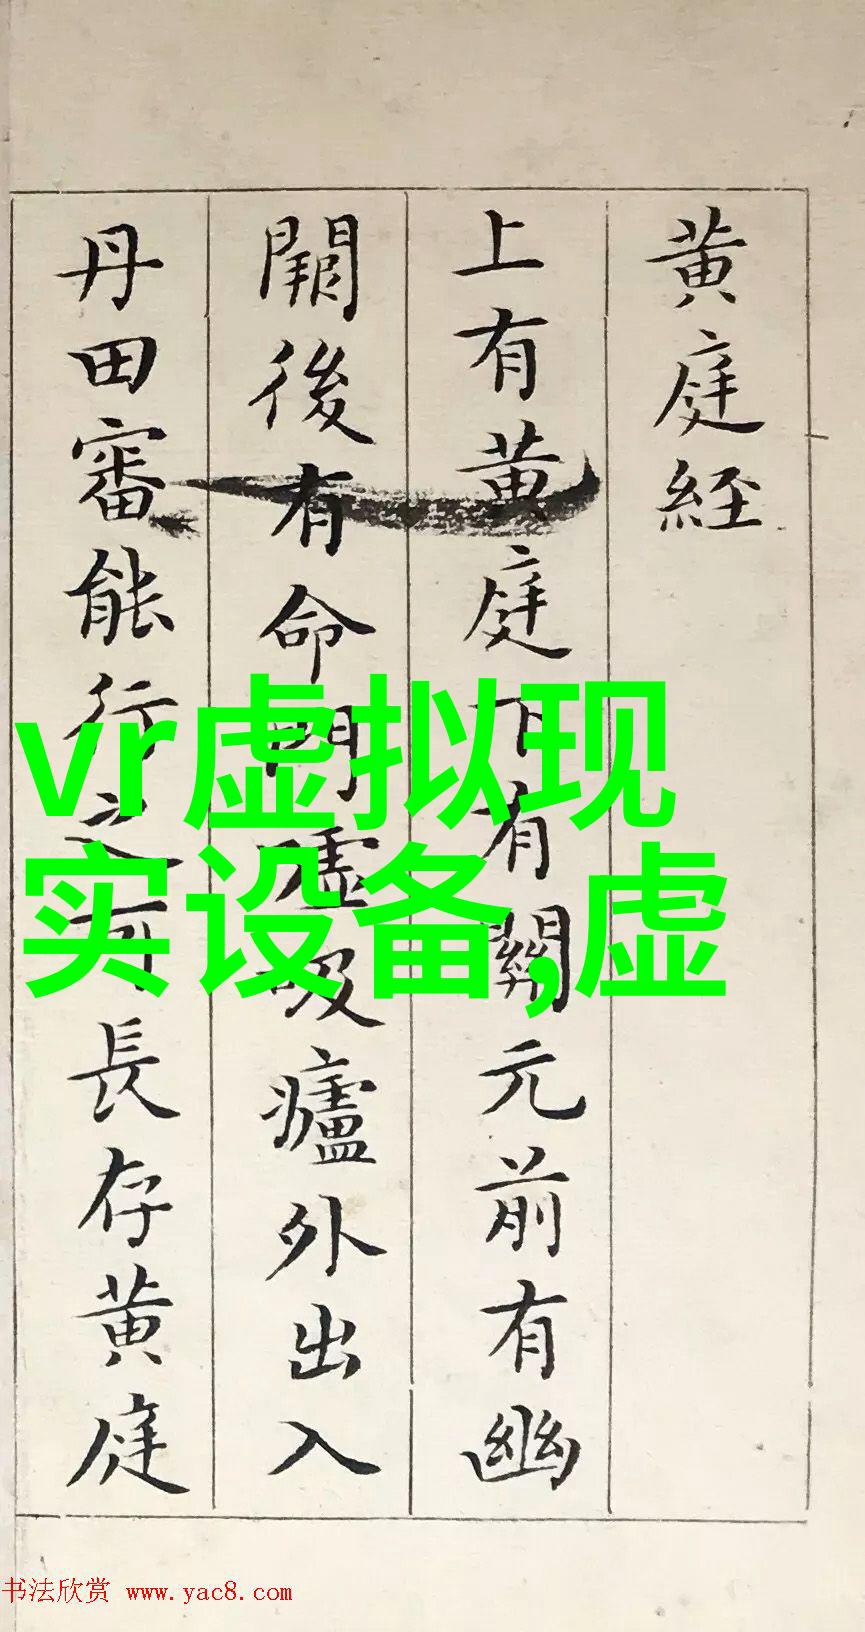 黄庭経
上有黄庭下有關元前有幽
闕後有命門嘘吸廬外出入
丹田審能行之可長存黄庭
vr虚拟现
实设备,虚
书法欣赏 www.yac8.com